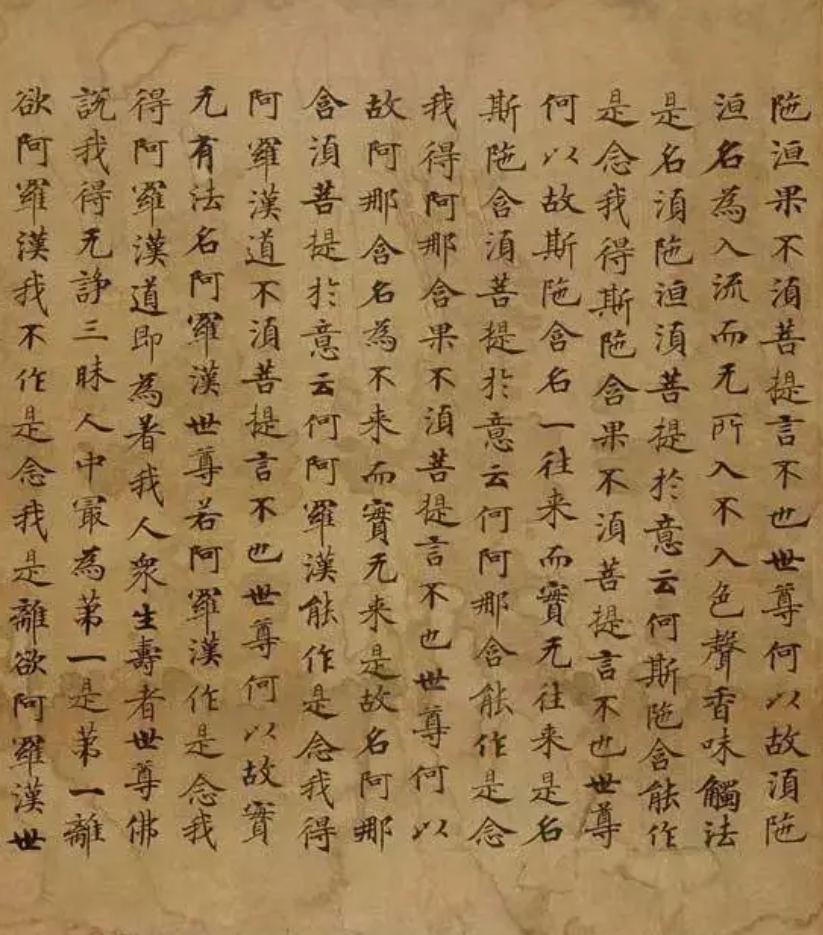 陁洹果不湏菩提言不也世尊何以故湏陁
洹名為入流而无所入不入色聲香味觸法
是名湏陁洹湏菩提於意云何斯陁含能作
是念我得斯陁含果不湏菩提言不也世尊
何以故斯陁含名一往来而實无往来是名
斯陁含湏菩提於意云何阿那含能作是念
我得阿那含果不湏菩提言不也世尊何以
故阿那含名為不来而實无来是故名阿那
含湏菩提於意云何阿羅漢能作是念我得
阿羅漢道不湏菩提言不也世尊何以故實
无有法名阿羅漢世尊若阿羅漢作是念我
得阿羅漢道即為著我人衆生壽者世尊佛
說我得无諍三昧人中冣為苐一是苐一離
欲阿羅漢我不作是念我是離欲阿羅漢世